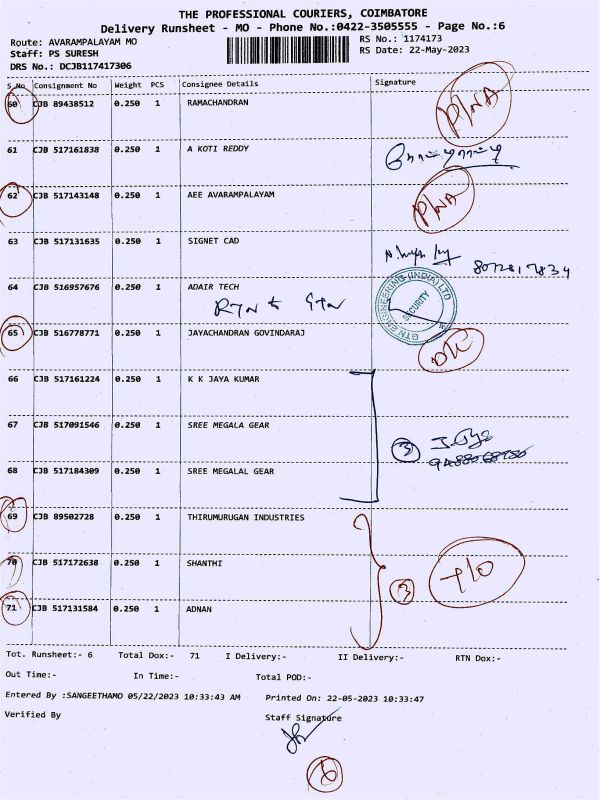 THE PROFESSIONAL COURIERS, COIMBATORE
Delivery Runsheet - MO - Phone No.:0422-3505555 - Page No.:6
Route: AVARAMPALAYAM MO RS No.: 1174173
Staff: PS SURESH RS Date: 22-May-2023
DRS No.: DCJB117417306
S.No Consignment No Weight PCS Consignee Details Signature
60 CJB 89438512 0.250 1 RAMACHANDRAN P/NA
61 CJB 517161838 0.250 1 A KOTI REDDY
62 CJB 517143148 0.250 1 AEE AVARAMPALAYAM P/NA
63 CJB 517131635 0.250 1 SIGNET CAD
8072817834
64 CJB 516957676 0.250 1 ADAIR TECH
RTN to GTN
GTN ENGINEERING (INDIA) LTD
SECURITY
65 CJB 516778771 0.250 1 JAYACHANDRAN GOVINDARAJ
66 CJB 517161224 0.250 1 K K JAYA KUMAR
67 CJB 517091546 0.250 1 SREE MEGALA GEAR
3
68 CJB 517184309 0.250 1 SREE MEGALAL GEAR
69 CJB 89502728 0.250 1 THIRUMURUGAN INDUSTRIES
70 CJB 517172638 0.250 1 SHANTHI
3
71 CJB 517131584 0.250 1 ADNAN
Tot. Runsheet:- 6 Total Dox:- 71 I Delivery:- II Delivery:- RTN Dox:-
Out Time:- In Time:- Total POD:-
Entered By :SANGEETHAMO 05/22/2023 10:33:43 AM Printed On: 22-05-2023 10:33:47
Verified By Staff Signature
6